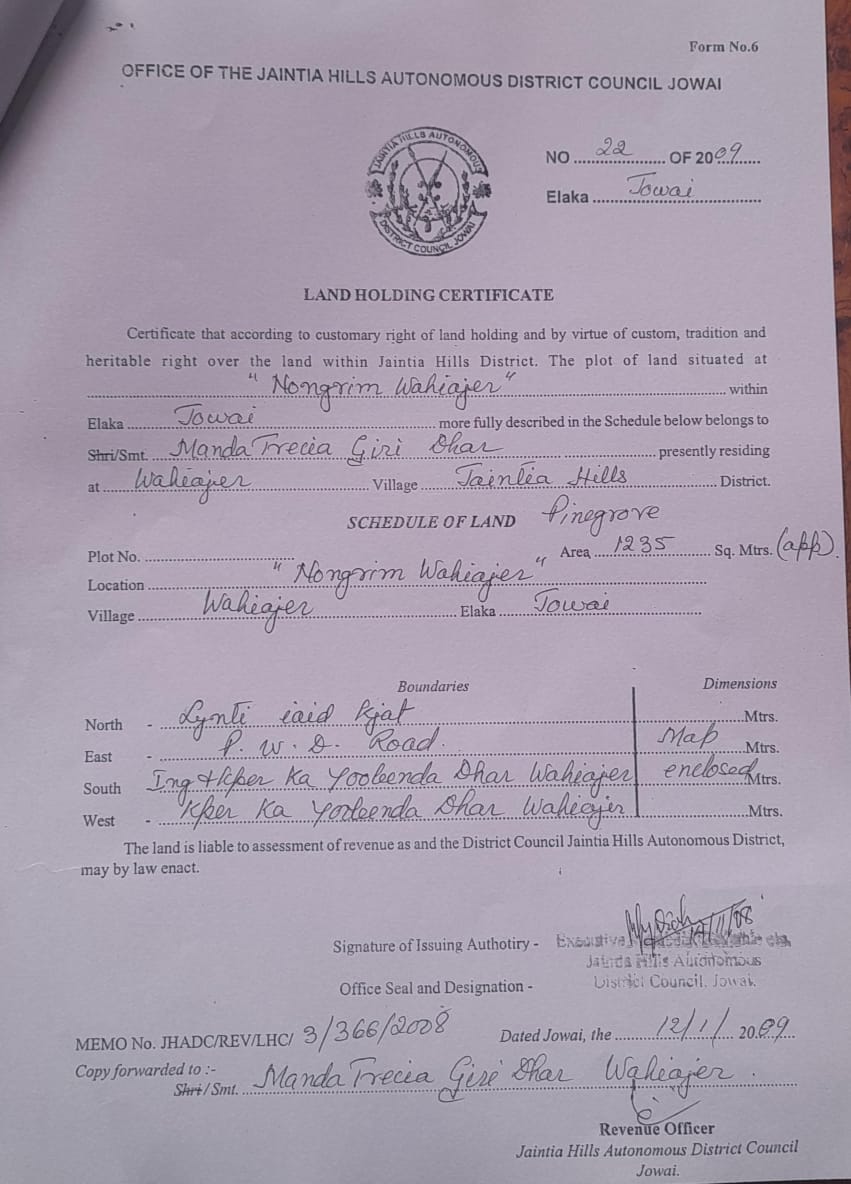 Form No.6
OFFICE OF THE JAINTIA HILLS AUTONOMOUS DISTRICT COUNCIL JOWAI
JAINTIA HILLS AUTONOMOUS
DISTRICT COUNCIL JOWAI
NO ........22........ OF 2009
Elaka ........Jowai........
LAND HOLDING CERTIFICATE
Certificate that according to customary right of land holding and by virtue of custom, tradition and
heritable right over the land within Jaintia Hills District. The plot of land situated at
"Nongrim Wahiajer" within
Elaka Jowai more fully described in the Schedule below belongs to
Shri/Smt. Manda Trecia Giri Dhar presently residing
at Wahiajer Village Jaintia Hills District.
SCHEDULE OF LAND Pinegrove
Plot No. ........ Area 1235 Sq. Mtrs. (app).
Location "Nongrim Wahiajer"
Village Wahiajer Elaka Jowai
Boundaries Dimensions
North - Lynti iaid Kjat Mtrs.
East - P.W.D. Road. Map Mtrs.
South Ing + Kper Ka Yooleenda Dhar Wahiajer enclosed Mtrs.
West - Kper Ka Yooleenda Dhar Wahiajer Mtrs.
The land is liable to assessment of revenue as and the District Council Jaintia Hills Autonomous District,
may by law enact.
Signature of Issuing Authotiry - Executive
Jaintia Hills Autonomous
Office Seal and Designation - District Council, Jowai.
MEMO No. JHADC/REV/LHC/ 3/366/2008 Dated Jowai, the 12/1/ 2009
Copy forwarded to :-
Shri / Smt. Manda Trecia Giri Dhar Wahiajer.
Revenue Officer
Jaintia Hills Autonomous District Council
Jowai.